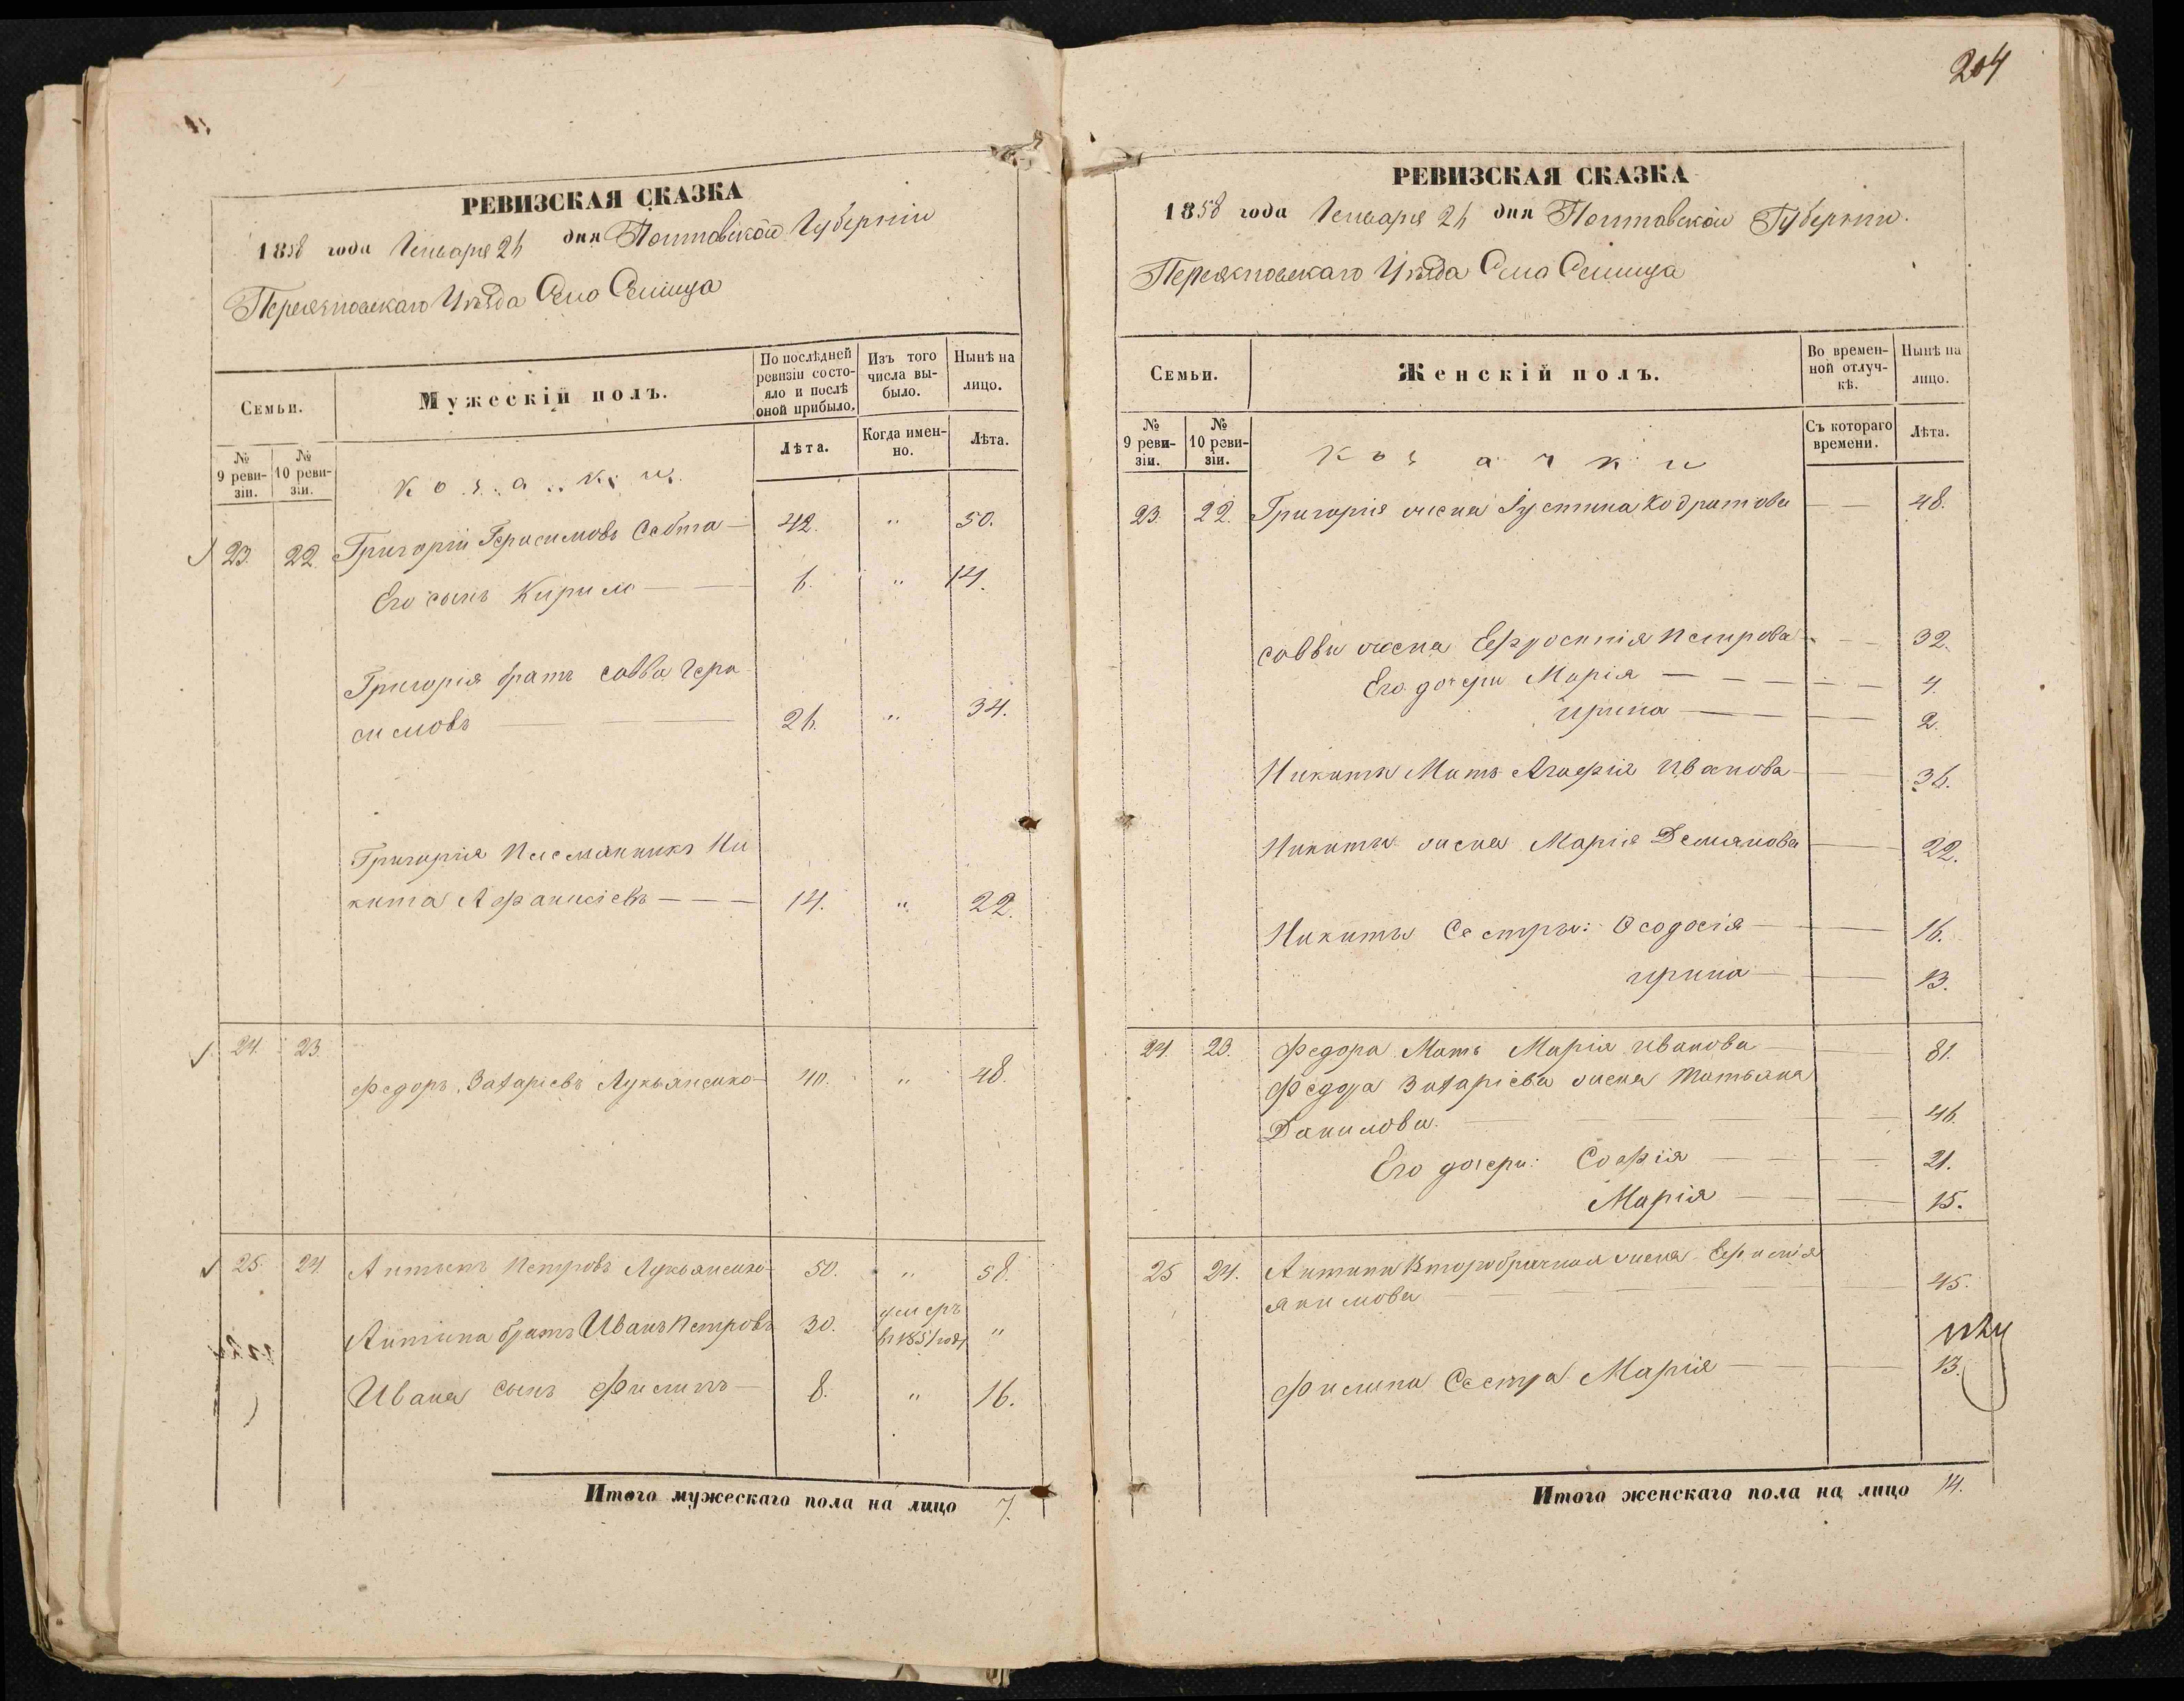 204
РЕВИЗСКАЯ СКАЗКА
1858 года Генваря 26 дня Полтавской Губерніи
Переяславскаго Уѣзда Село Сеница
Семьи.
Мужескій полъ.
По послѣдней ревизіи состояло и послѣ оной прибыло.
Изъ того числа выбыло.
Нынѣ на лицо.
№ 9 ревизіи.
№ 10 ревизіи.
Козаки
Лѣта.
Когда именно.
Лѣта.
23. 22. Григорій Герасимовъ Савта 42. " 50.
Его сынъ Кирило 6. " 14.
Григорія братъ Савва Гера
симовъ 26. " 34.
Григорія племянникъ Ни
кита Афанасіевъ 14. " 22.
24. 23.
Федоръ Захаріевъ Лукьяненко 40. " 48.
25. 24. Антипъ Петровъ Лукьяненко 50. " 58.
Антипа братъ Иванъ Петровъ 30. умеръ въ 1851 году "
Ивана сынъ Филипъ 8. " 16.
Итого мужескаго пола на лицо 7.
РЕВИЗСКАЯ СКАЗКА
1858 года Генваря 26 дня Полтавской Губерніи.
Переяславскаго Уѣзда Села Сеница
Семьи.
Женскій полъ.
Во временной отлучкѣ.
Нынѣ на лицо.
№ 9 ревизіи.
№ 10 ревизіи.
Козачки
Съ котораго времени.
Лѣта.
23. 22. Григорія жена Іустина Кодратова 48.
Саввы жена Ефросинія Петрова 32.
Его дочери Марія 4.
Ирина 2.
Никиты Мать Агафія Иванова 36.
Никиты жена Марія Демянова 22.
Никиты Сестры: Ѳеодосія 16.
Ирина 13.
24. 23. Федора Мать Марія Иванова 81.
Федора Захаріева жена Татьяна
Данилова. 46.
Его дочери: Софія 21.
Марія 15.
25 24. Антипа Второбрачная жена Ефимія
Якимова 45.
Филипа Сестра Марія 13.
Итого женскаго пола на лицо 14.